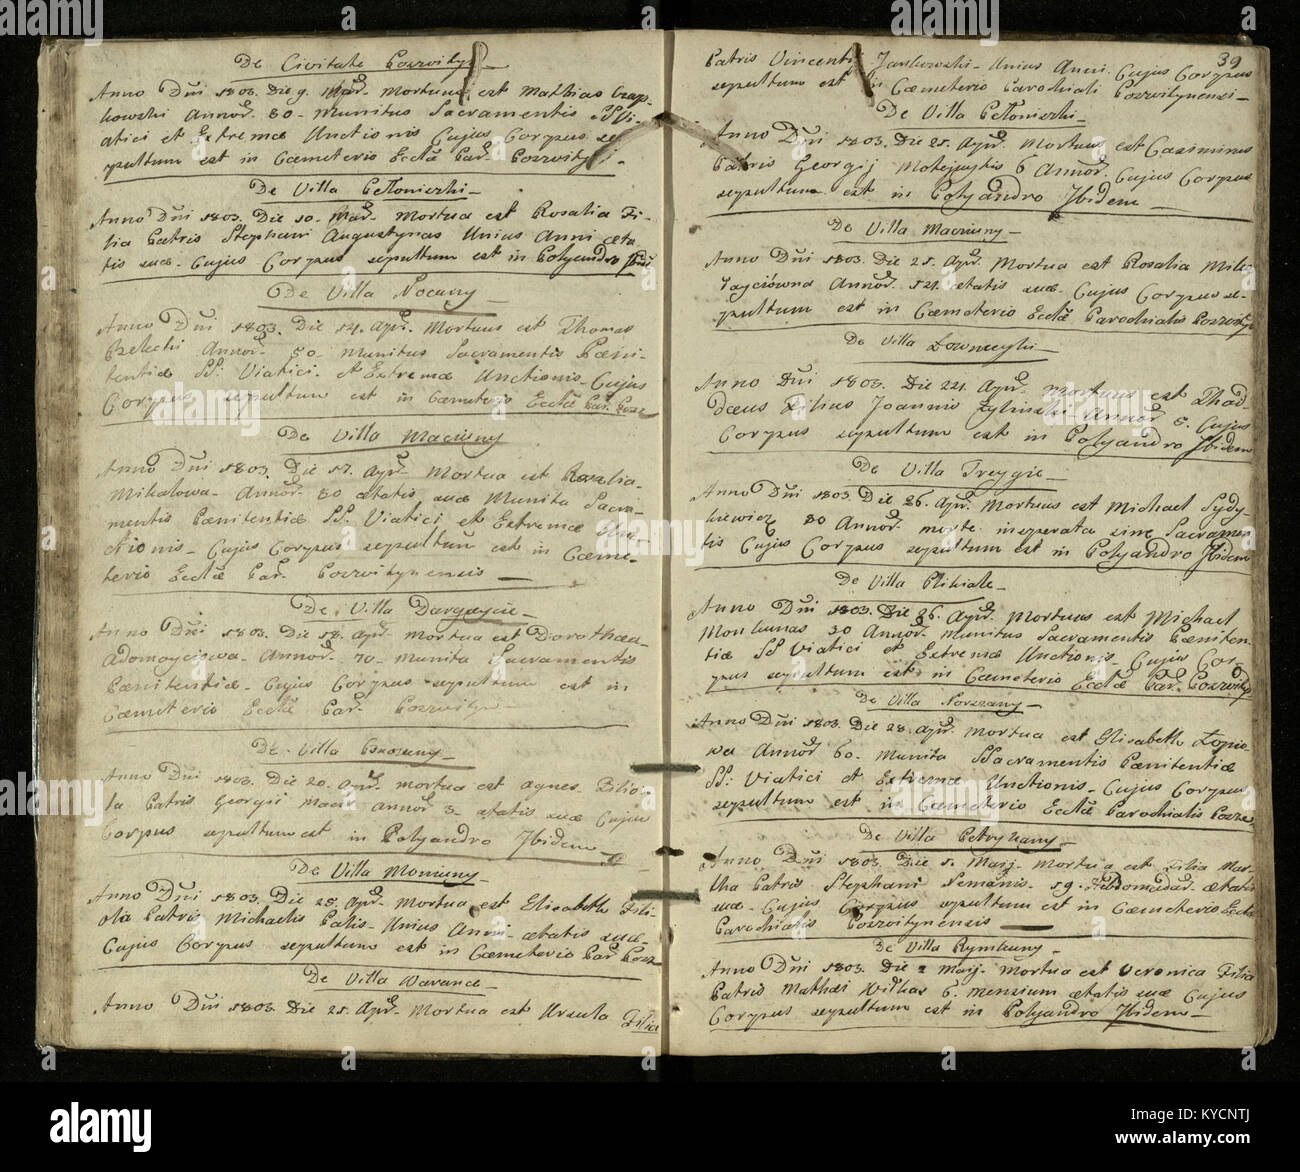 De Civitate Poszwityn
Anno Dni 1803. Die 9. Mar. Mortuus est Mathias Czap-
kowski Annor. 80 - Munitus Sacramentis SS Vi-
atici et Extremæ Unctionis Cujus Corpus se-
pultum est in Cœmeterio Ecctæ Par. Poszwityn.
De Villa Pettoniszki
Anno Dni 1803. Die 10. Mar. Mortua est Rosalia Fi-
lia Patris Stephani Augustynas Unius Anni æta-
tis suæ. Cujus Corpus sepultum est in Polyandro Ibid
De Villa Nocuny
Anno Dni 1803. Die 14. Apr. Mortuus est Thomas
Annor. 50. Munitus Sacramentis Pœni-
tentiæ SS. Viatici. et Extremæ Unctionis - Cujus
Corpus sepultum est in Cœmeterio Ecctæ Par. Posz
De Villa Maciuny
Anno Dni 1803. Die 17. Apr. Mortua est Rozalia
Mikalowa - Annor. 80 ætatis suæ Munita Sacra-
mentis Pœnitentiæ SS. Viatici et Extremæ Un-
ctionis - Cujus Corpus sepultum est in Cœme-
terio Ecctæ Par. Poszwitynensis
De Villa Dargaycie
Anno Dni 1803. Die 18. Apr. Mortua est Dorothea
Adomayciowa - Annor. 70 - Munita Sacramentis
Pœnitentiæ - Cujus Corpus sepultum est in
Cœmeterio Ecctæ Par. Poszwityn -
De Villa
Anno Dni 1803. Die 20. Apr. mortua est Agnes Filio-
la Patris Georgii Annor. 3. ætatis suæ Cujus
Corpus sepultum est in Polyandro Ibidem
De Villa Moniuny
Anno Dni 1803. Die 25. Apr. Mortua est Elisabeth Fili-
ola Patris Michaelis Unius Anni - ætatis suæ -
Cujus Corpus sepultum est in Cœmeterio Par. Posz
De Villa
Anno Dni 1803. Die 25. Apr. Mortua est Ursula Filia
39
Patris Vincentii Jankowski - Unius Anni. Cujus Corpus
sepultum est in Cœmeterio Parochiali Poszwitynensi -
De Villa Pettoniszki
Anno Dni 1803. Die 25. Apr. Mortuus est Casimirus
Patris Georgij 6 Annor. Cujus Corpus
sepultum est in Polyandro Ibidem
De Villa Maciuny
Anno Dni 1803. Die 25. Apr. Mortua est Rosalia Miko-
łayciowna Annor. 54. ætatis suæ - Cujus Corpus se-
pultum est in Cœmeterio Ecctæ Parochialis Poszwityn
De Villa
Anno Dni 1803. Die 24. Apr. mortuus est Thad-
dæus Filius Joannis Żyliński Annor. 5. Cujus
Corpus sepultum est in Polyandro Ibidem
De Villa Treygie
Anno Dni 1803. Die 26. Apr. Mortuus est Michael Sydy-
kiewicz 80 Annor. morte insperata sine Sacramen-
tis Cujus Corpus sepultum est in Polyandro Ibidem
De Villa
Anno Dni 1803. Die 26. Apr. Mortuus est Michael
Monkunas 30 Annor. munitus Sacramentis Pœniten-
tiæ SS Viatici et Extremæ Unctionis - Cujus Cor-
pus sepultum est in Cœmeterio Ecctæ Par. Poszwityn
De Villa Norszany
Anno Dni 1803. Die 28. Apr. mortua est Elisabeth
wa Annor. 60. munita SSacramentis Pœnitentiæ
SS. Viatici et Extremæ Unctionis - Cujus Corpus
sepultum est in Cœmeterio Ecctæ Parochialis Posz
De Villa
Anno Dni 1803. Die 1. Maij. mortua est Filia Mar-
tha Patris Stephani 19. Hebdomadar. ætatis
suæ - Cujus Corpus sepultum est in Cœmeterio Ecctæ
Parochialis Poszwitynensis
De Villa Rymkuny
Anno Dni 1803. Die 2 Maij. mortua est Veronica Filia
Patris Mathæi Witkus 6. mensium ætatis suæ Cujus
Corpus sepultum est in Polyandro Ibidem
alamy
Image ID: KYCNTJ
www.alamy.com